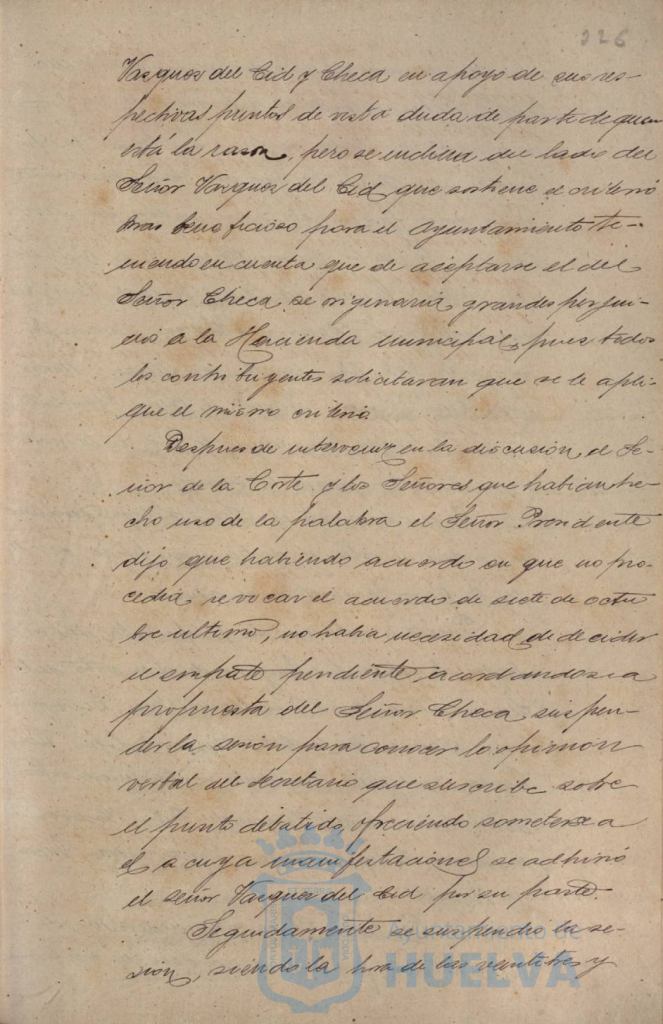 226
Vazquez del Cid y Checa en apoyo de sus res-
pectivas puntos de vista duda de parte de quien
está la razon, pero se inclina du lado del
Señor Vazquez del Cid, que sostiene el criterio
mas beneficioso para el Ayuntamiento te-
niendo en cuenta que de aceptarse el del
Señor Checa se originaria grandes perjui-
cios a la Hacienda municipal, pues todos
los contribuyentes solicitaran que se le apli-
que el mismo criterio.
Despues de intervenir en la discusion, el Se-
ñor de la Corte y los Señores que habian he-
cho uso de la palabra el Señor Presidente
dijo que habiendo acuerdo en que no pro-
cedia revocar el acuerdo de siete de octu
bre ultimo, no habia necesidad de decidir
el empate pendiente, acordandose a
propuesta del Señor Checa suspen-
der la sesión para conocer la opinion
verbal del Secretario que suscribe sobre
el punto debatido, ofreciendo someterse a
el a cuya manifestaciones se adhirió
el señor Vazquez del Cid por su parte.
Seguidamente se suspendio la se-
sion, siendo la hora de las veintitres y
AYUNTAMIENTO DE
HUELVA